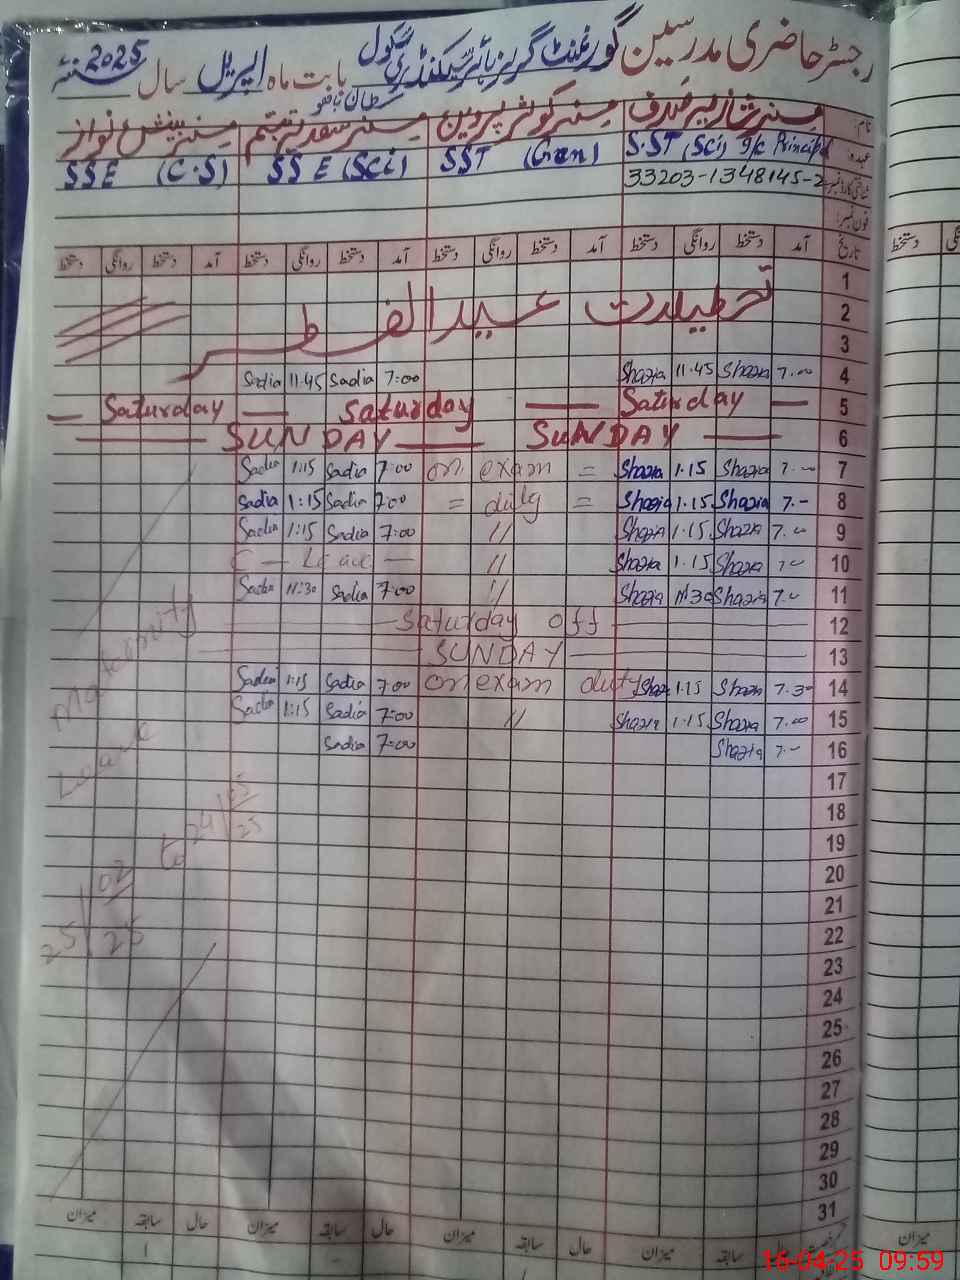 رجسٹر حاضری مدرسین گورنمنٹ گرلز ہائر سیکنڈری سکول بابت ماہ اپریل سال 2025
نام: مسز کوثر پروین
عہدہ: S.ST (Sci) I/C Principal SST (Gen) SSE (Sci) SSE (C.S)
شناختی کارڈ نمبر 33203-1348145-2
فون نمبر:
تاریخ آمد دستخط روانگی دستخط آمد دستخط روانگی دستخط آمد دستخط روانگی دستخط آمد دستخط روانگی دستخط
1
2 تعطیلات عید الفطر
3
4 7:00 Shazia 11:45 Shazia 7:00 Sadia 11:45 Sadia
5 Saturday Saturday Saturday
6 SUNDAY SUNDAY
7 7:00 Shazia 1:15 Shazia = on exam 7:00 Sadia 1:15 Sadia
8 7.- Shazia 1:15 Shazia = duty = 7:00 Sadia 1:15 Sadia
9 7:00 Shazia 1:15 Shazia // 7:00 Sadia 1:15 Sadia
10 Shazia 1.15 Shazia // C - Leave -
11 7.0 Shazia 11:30 Shazia // 7:00 Sadia 11:30 Sadia
12 Saturday off
13 SUNDAY
14 7.30 Shazia 1:15 Shazia on exam duty 7:00 Sadia 1:15 Sadia
15 7:00 Shazia 1:15 Shazia // 7:00 Sadia 1:15 Sadia
16 7.- Shazia 7:00 Sadia
17
18
19
20
21
22
23
24
25
26
27
28
29
30
31
Maternity
Leave
25/02/25 to 24/05/25
حال سابقہ میزان حال سابقہ میزان حال سابقہ میزان حال سابقہ میزان
میزان
دستخط
16-04-25 09:59